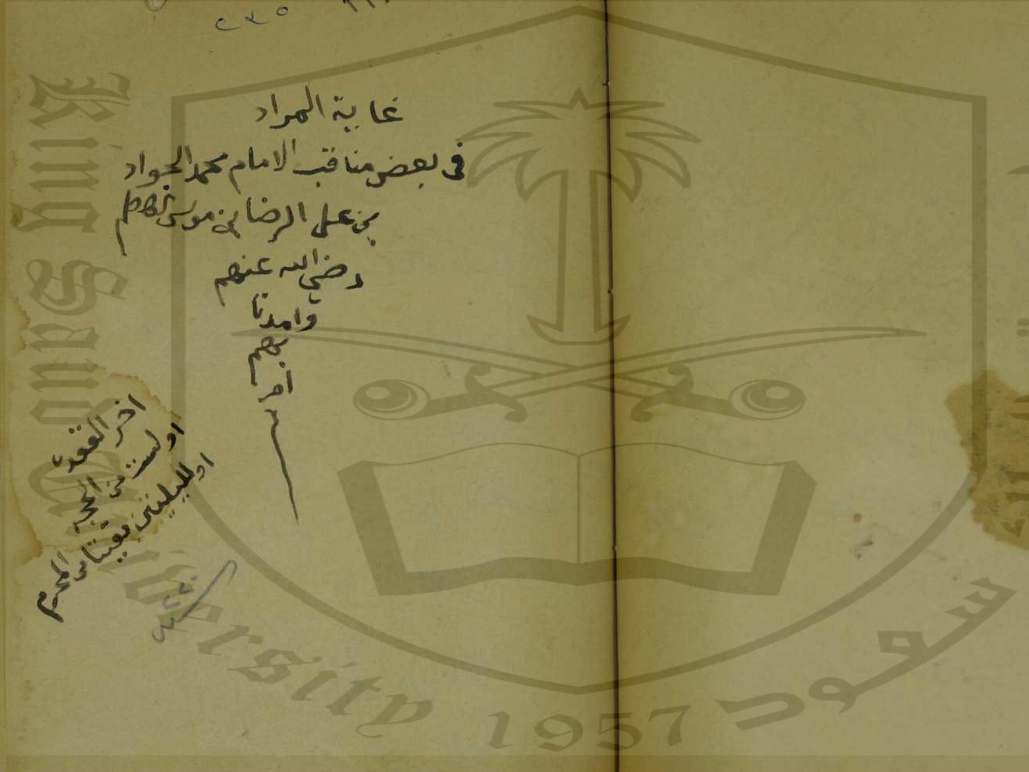 ٢٣٥
غاية المراد
فى بعض مناقب الامام محمد الجواد
بن على الرضا بن موسى الكاظم
رضي الله عنهم
وامدنا
بهم
امين
اخر القعدة
او لست من الحجة
او لليلتين بقيتا من المحرم
King Saud University 1957
سعود